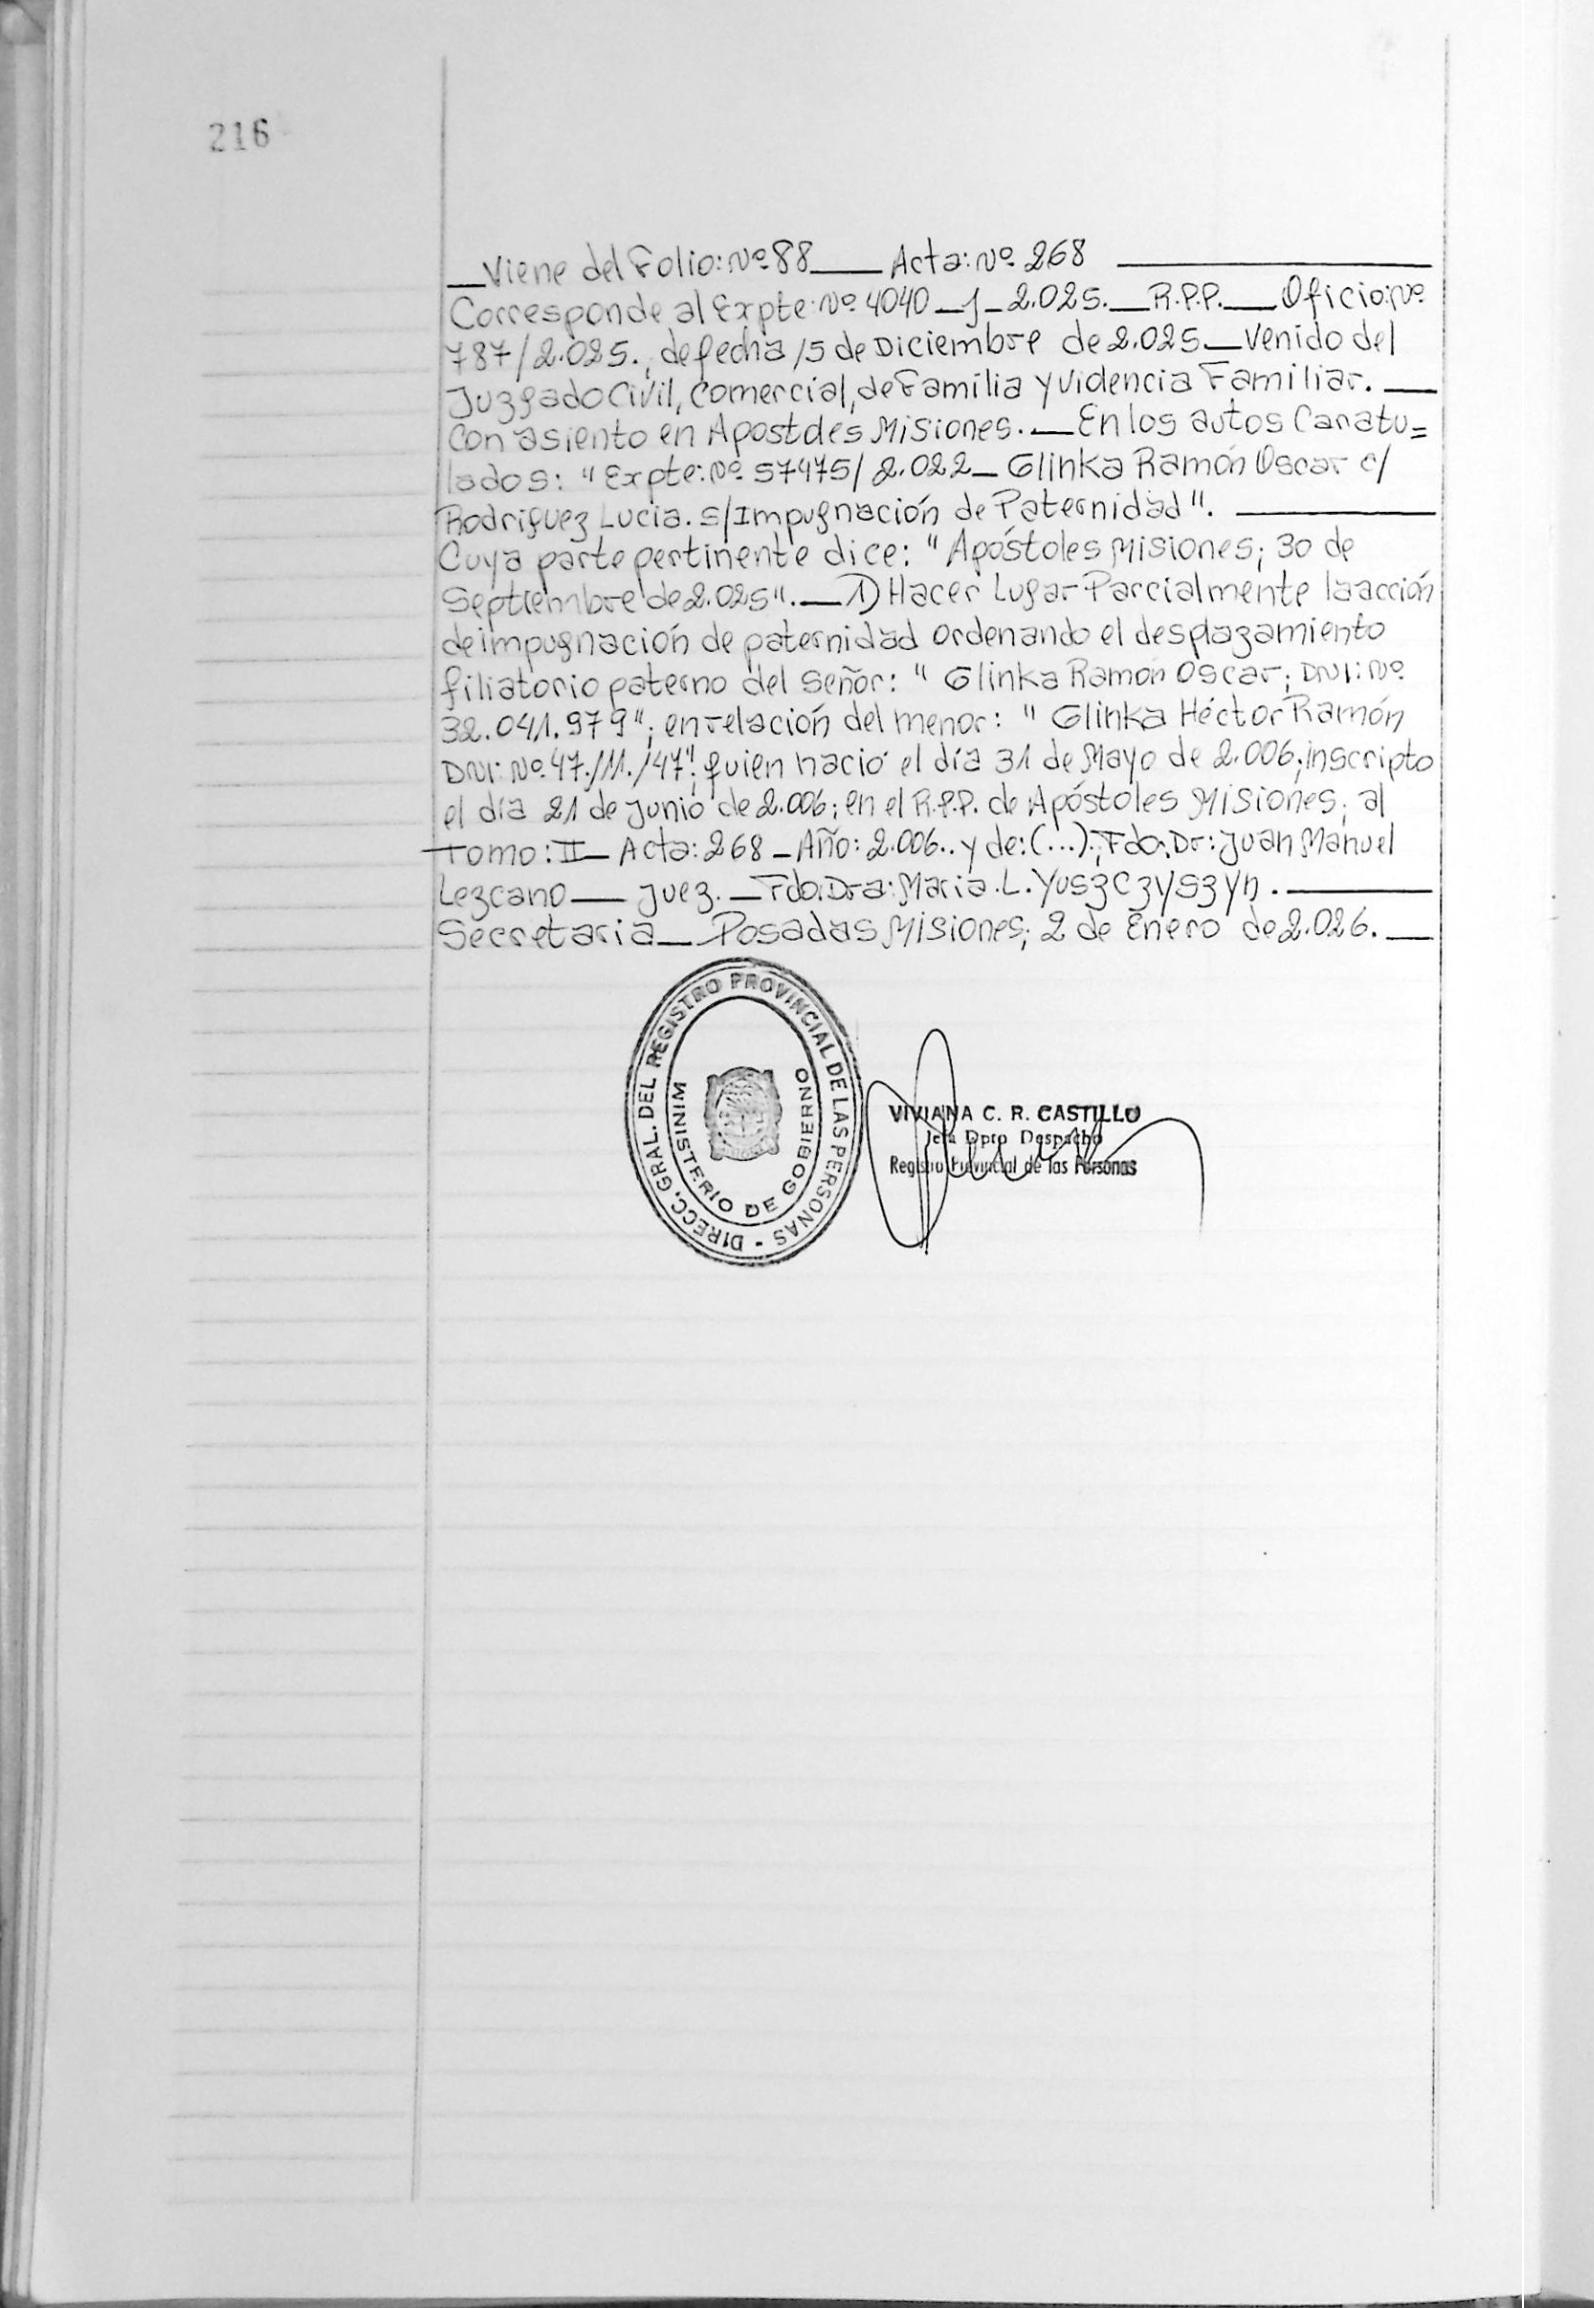 216
_Viene del Folio: Nº 88____ Acta: Nº 268 ________
Corresponde al Expte: Nº 4040_J_2.025.__R.P.P.___Oficio: Nº
787/2.025., de fecha 15 de Diciembre de 2.025__Venido del
Juzgado Civil, Comercial, de Familia y Violencia Familiar.___
Con asiento en Apostoles Misiones.__En los autos Caratu=
lados: "Expte: Nº 57475/2.022_Glinka Ramón Oscar c/
Rodriguez Lucia. s/Impugnación de Paternidad".________
Cuya parte pertinente dice: "Apóstoles Misiones; 30 de
Septiembre de 2.025".__1) Hacer Lugar Parcialmente la acción
de impugnación de paternidad ordenando el desplazamiento
filiatorio paterno del Señor: "Glinka Ramón Oscar; DNI: Nº
32.041.979"; en relación del menor: "Glinka Héctor Ramón
DNI: Nº 47.111.147"; quien nació el día 31 de Mayo de 2.006; inscripto
el día 21 de Junio de 2.006; en el R.P.P. de Apóstoles Misiones; al
Tomo: II_ Acta: 268_Año: 2.006.. y de: (...); Fdo. Dr: Juan Manuel
Lezcano___Juez.__Fdo. Dra: Maria. L. Yuszczyszyn.______
Secretaria__Posadas Misiones; 2 de Enero de 2.026.___
DIRECC. GRAL. DEL REGISTRO PROVINCIAL DE LAS PERSONAS -
MINISTERIO DE GOBIERNO
VIVIANA C. R. CASTILLO
Jefa Dpto Despacho
Registro Provincial de las Personas